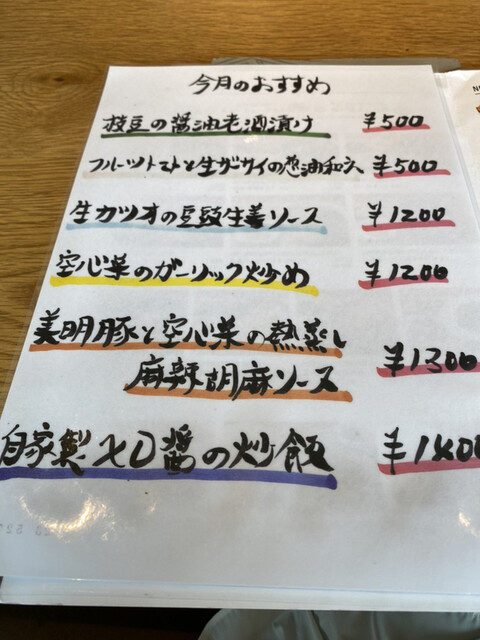 今月のおすすめ
枝豆の醤油老酒漬け ¥500
フルーツトマトと生ザーサイの葱油和え ¥500
生カツオの豆豉生姜ソース ¥1200
空心菜のガーリック炒め ¥1200
美明豚と空心菜の熱蒸し
麻辣胡麻ソース ¥1300
自家製XO醤の炒飯 ¥1400